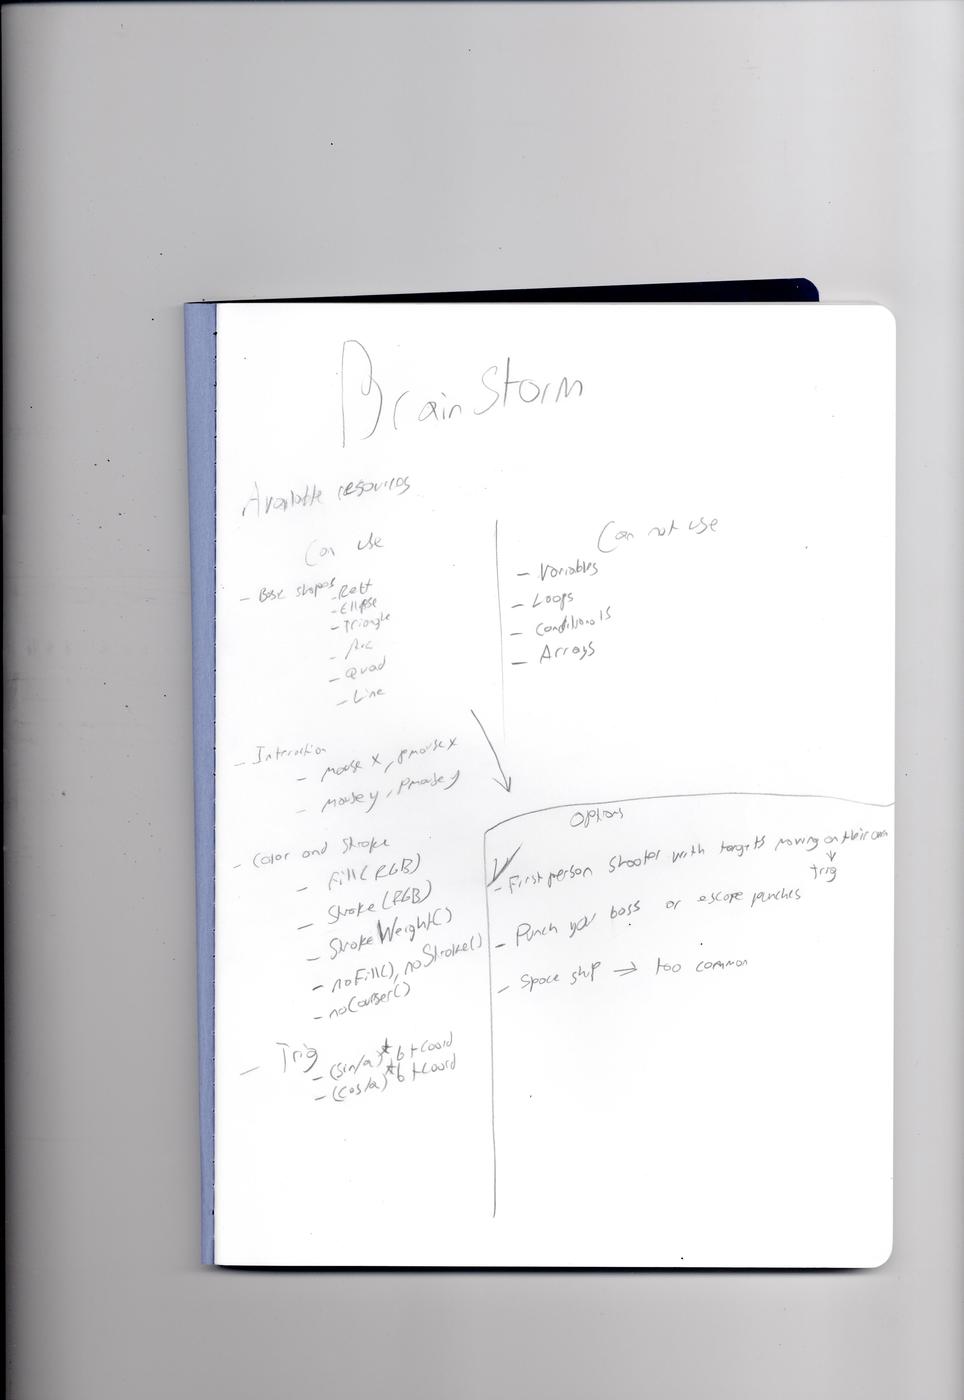 BrainStorm
Available resources
Can use
- Basic shapes - Rect
- Ellipse
- Triangle
- Arc
- Quad
- Line
- Interaction
- mouse x, pmouse x
- mouse y, pmouse y
- Color and Stroke
- Fill(RGB)
- Stroke(RGB)
- StrokeWeight()
- noFill(), noStroke()
- noCourser()
- Trig
- (sin/a)*b+coord
- (cos/a)*b+coord
Can not use
- Variables
- Loops
- Conditionals
- Arrays
Options
- First person shooter with targets moving on their own
trig
- Punch your boss or escape punches
- Space ship → too common